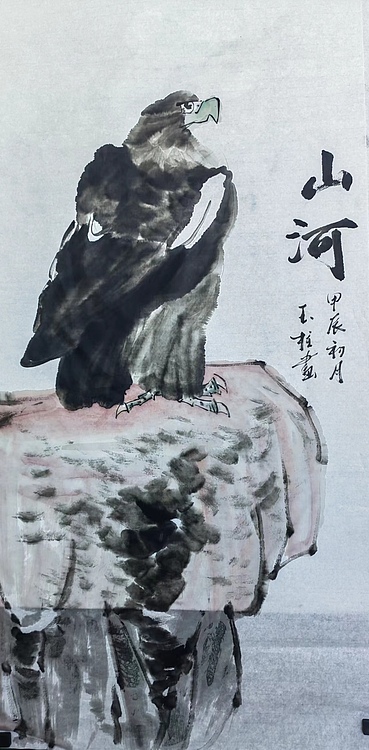 山河
甲辰初月
玉柱画